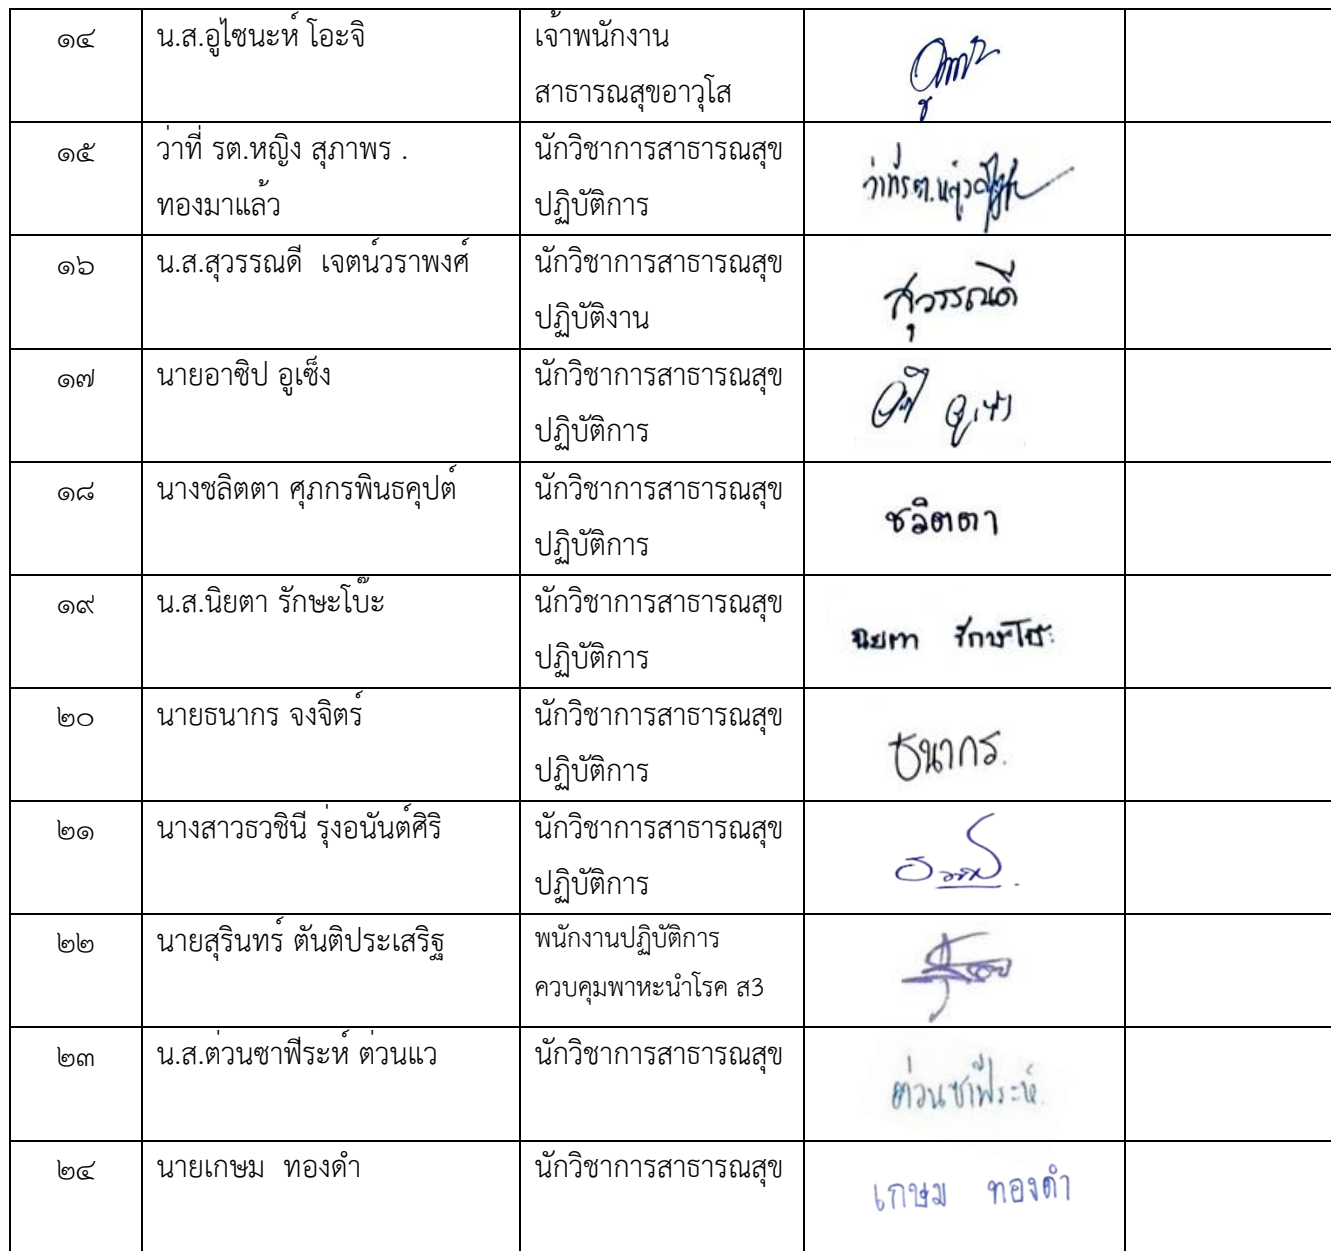 ๑๔ น.ส.อูไซนะห์ โอะจิ เจ้าพนักงาน
สาธารณสุขอาวุโส
๑๕ ว่าที่ รต.หญิง สุภาพร . นักวิชาการสาธารณสุข
ทองมาแล้ว ปฏิบัติการ
ว่าที่รต.หญิง
๑๖ น.ส.สุวรรณดี เจตน์วราพงศ์ นักวิชาการสาธารณสุข
ปฏิบัติงาน
สุวรรณดี
๑๗ นายอาซิป อูเซ็ง นักวิชาการสาธารณสุข
ปฏิบัติการ
๑๘ นางชลิตตา ศุภกรพินธคุปต์ นักวิชาการสาธารณสุข
ปฏิบัติการ
ชลิตตา
๑๙ น.ส.นิยตา รักษะโบ๊ะ นักวิชาการสาธารณสุข
ปฏิบัติการ
นิยตา รักษะโบ๊ะ
๒๐ นายธนากร จงจิตร์ นักวิชาการสาธารณสุข
ปฏิบัติการ
ธนากร.
๒๑ นางสาวธวชินี รุ่งอนันต์ศิริ นักวิชาการสาธารณสุข
ปฏิบัติการ
๒๒ นายสุรินทร์ ตันติประเสริฐ พนักงานปฏิบัติการ
ควบคุมพาหะนำโรค ส3
๒๓ น.ส.ต่วนซาฟีระห์ ต่วนแว นักวิชาการสาธารณสุข
ต่วนซาฟีระห์.
๒๔ นายเกษม ทองดำ นักวิชาการสาธารณสุข
เกษม ทองดำ